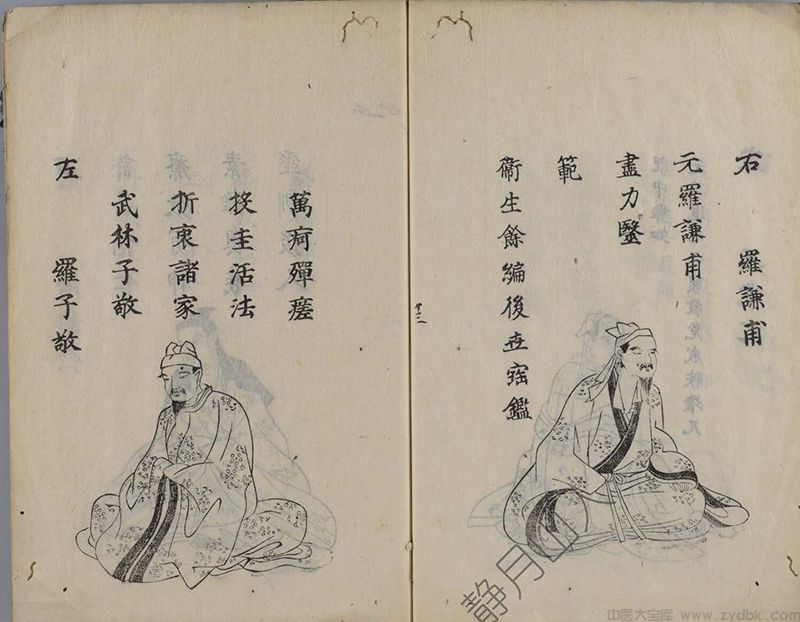 右 羅謙甫
元羅謙甫
盡力毉
範
衞生餘編後世寚鑑
萬痾彈瘥
投圭活法
折衷諸家
武林子敬
左 羅子敬
静月
中医大宝库 www.zydbk.com